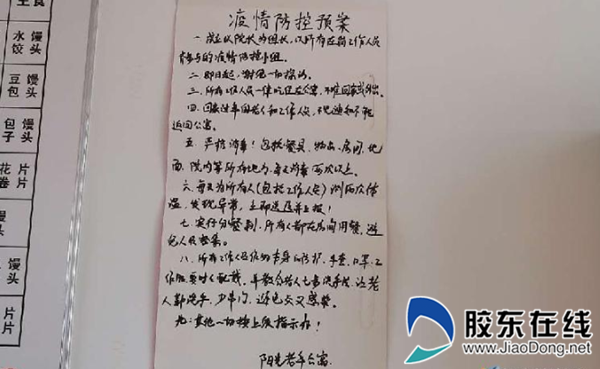 主食
水饺 馒头
豆包 馒头
包子 馒头
花卷 片片
馒头
馒头
片片
疫情防控预案
一、成立以院长为组长,以所有在岗工作人员
参与的疫情防控小组。
二、即日起,谢绝一切探访。
三、所有工作人员一律吃住在公寓,不准回家或外出。
四、回家过年的老人和工作人员,不通知不能
返回公寓。
五、严格消毒!包括餐具、物品、房间、地
面、院内等所有地方,每天消毒两次以上。
六、每天为所有人(包括工作人员)测两次体
温,发现异常,立即送医并上报!
七、实行分餐制,所有人都在房间用餐,避
免人员聚集。
八、所有工作人员做好自身防护,手套、口罩、工
作服要时时配戴。并教会老人七步洗手法,让老
人勤洗手,少串门,避免交叉感染。
九、其他一切按上级指示办!
阳光老年公寓
胶东在线
www.JiaoDong.net